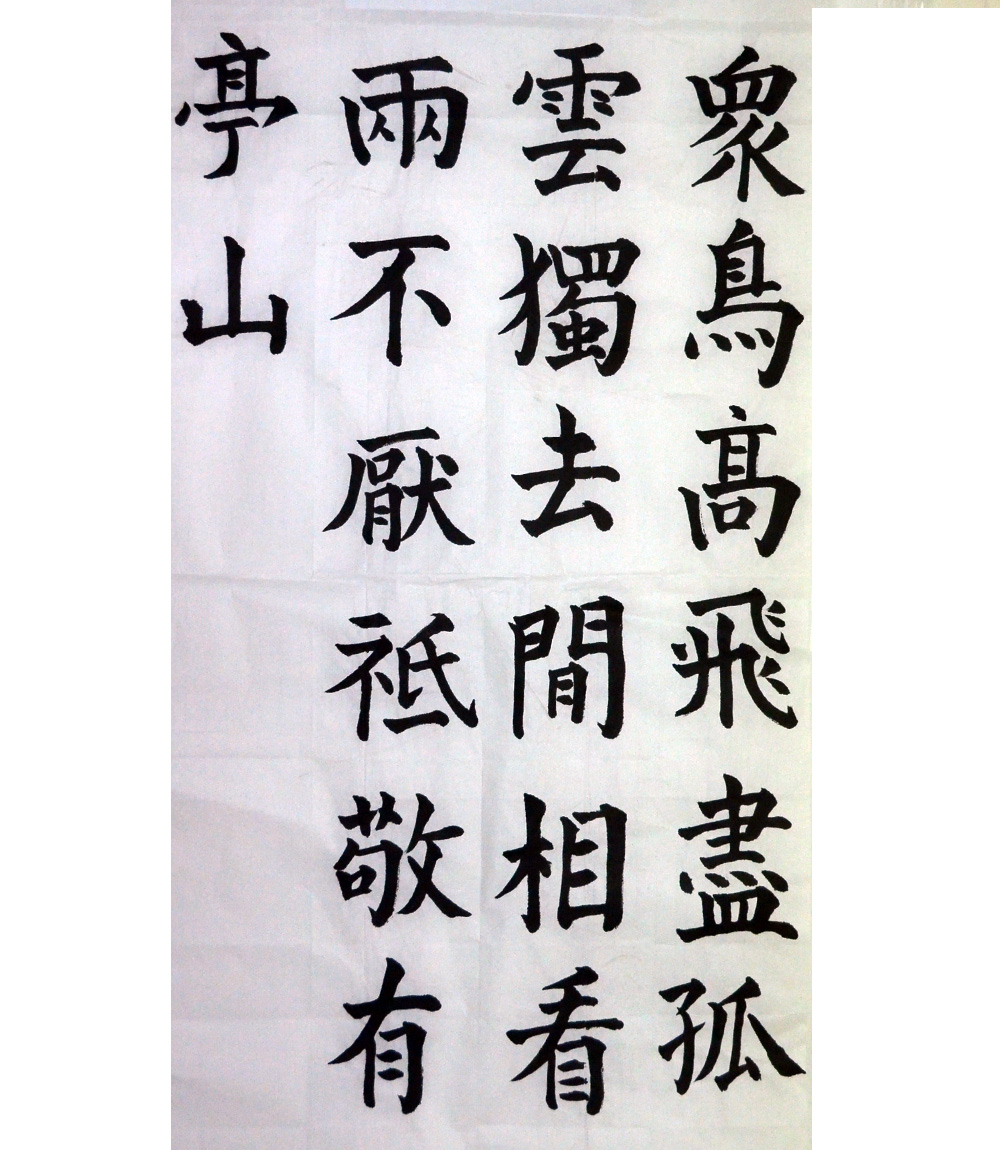 衆鳥髙飛盡孤
雲獨去閒相看
兩不厭祗敬有
亭山